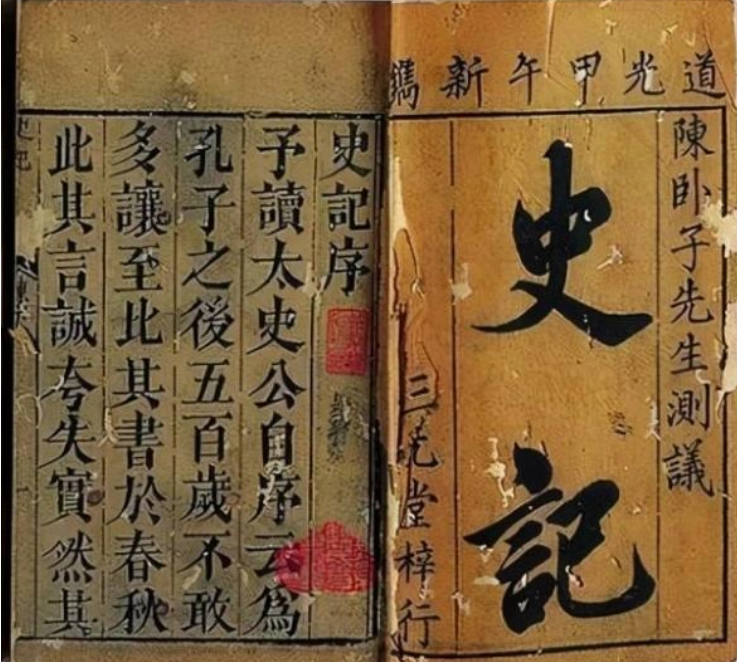 道光甲午新鐫
陳卧子先生測議
史記
三元堂梓行
史記序
予讀太史公自序云為
孔子之後五百歲不敢
多讓至此其書於春秋
此其言誠夸失實然其